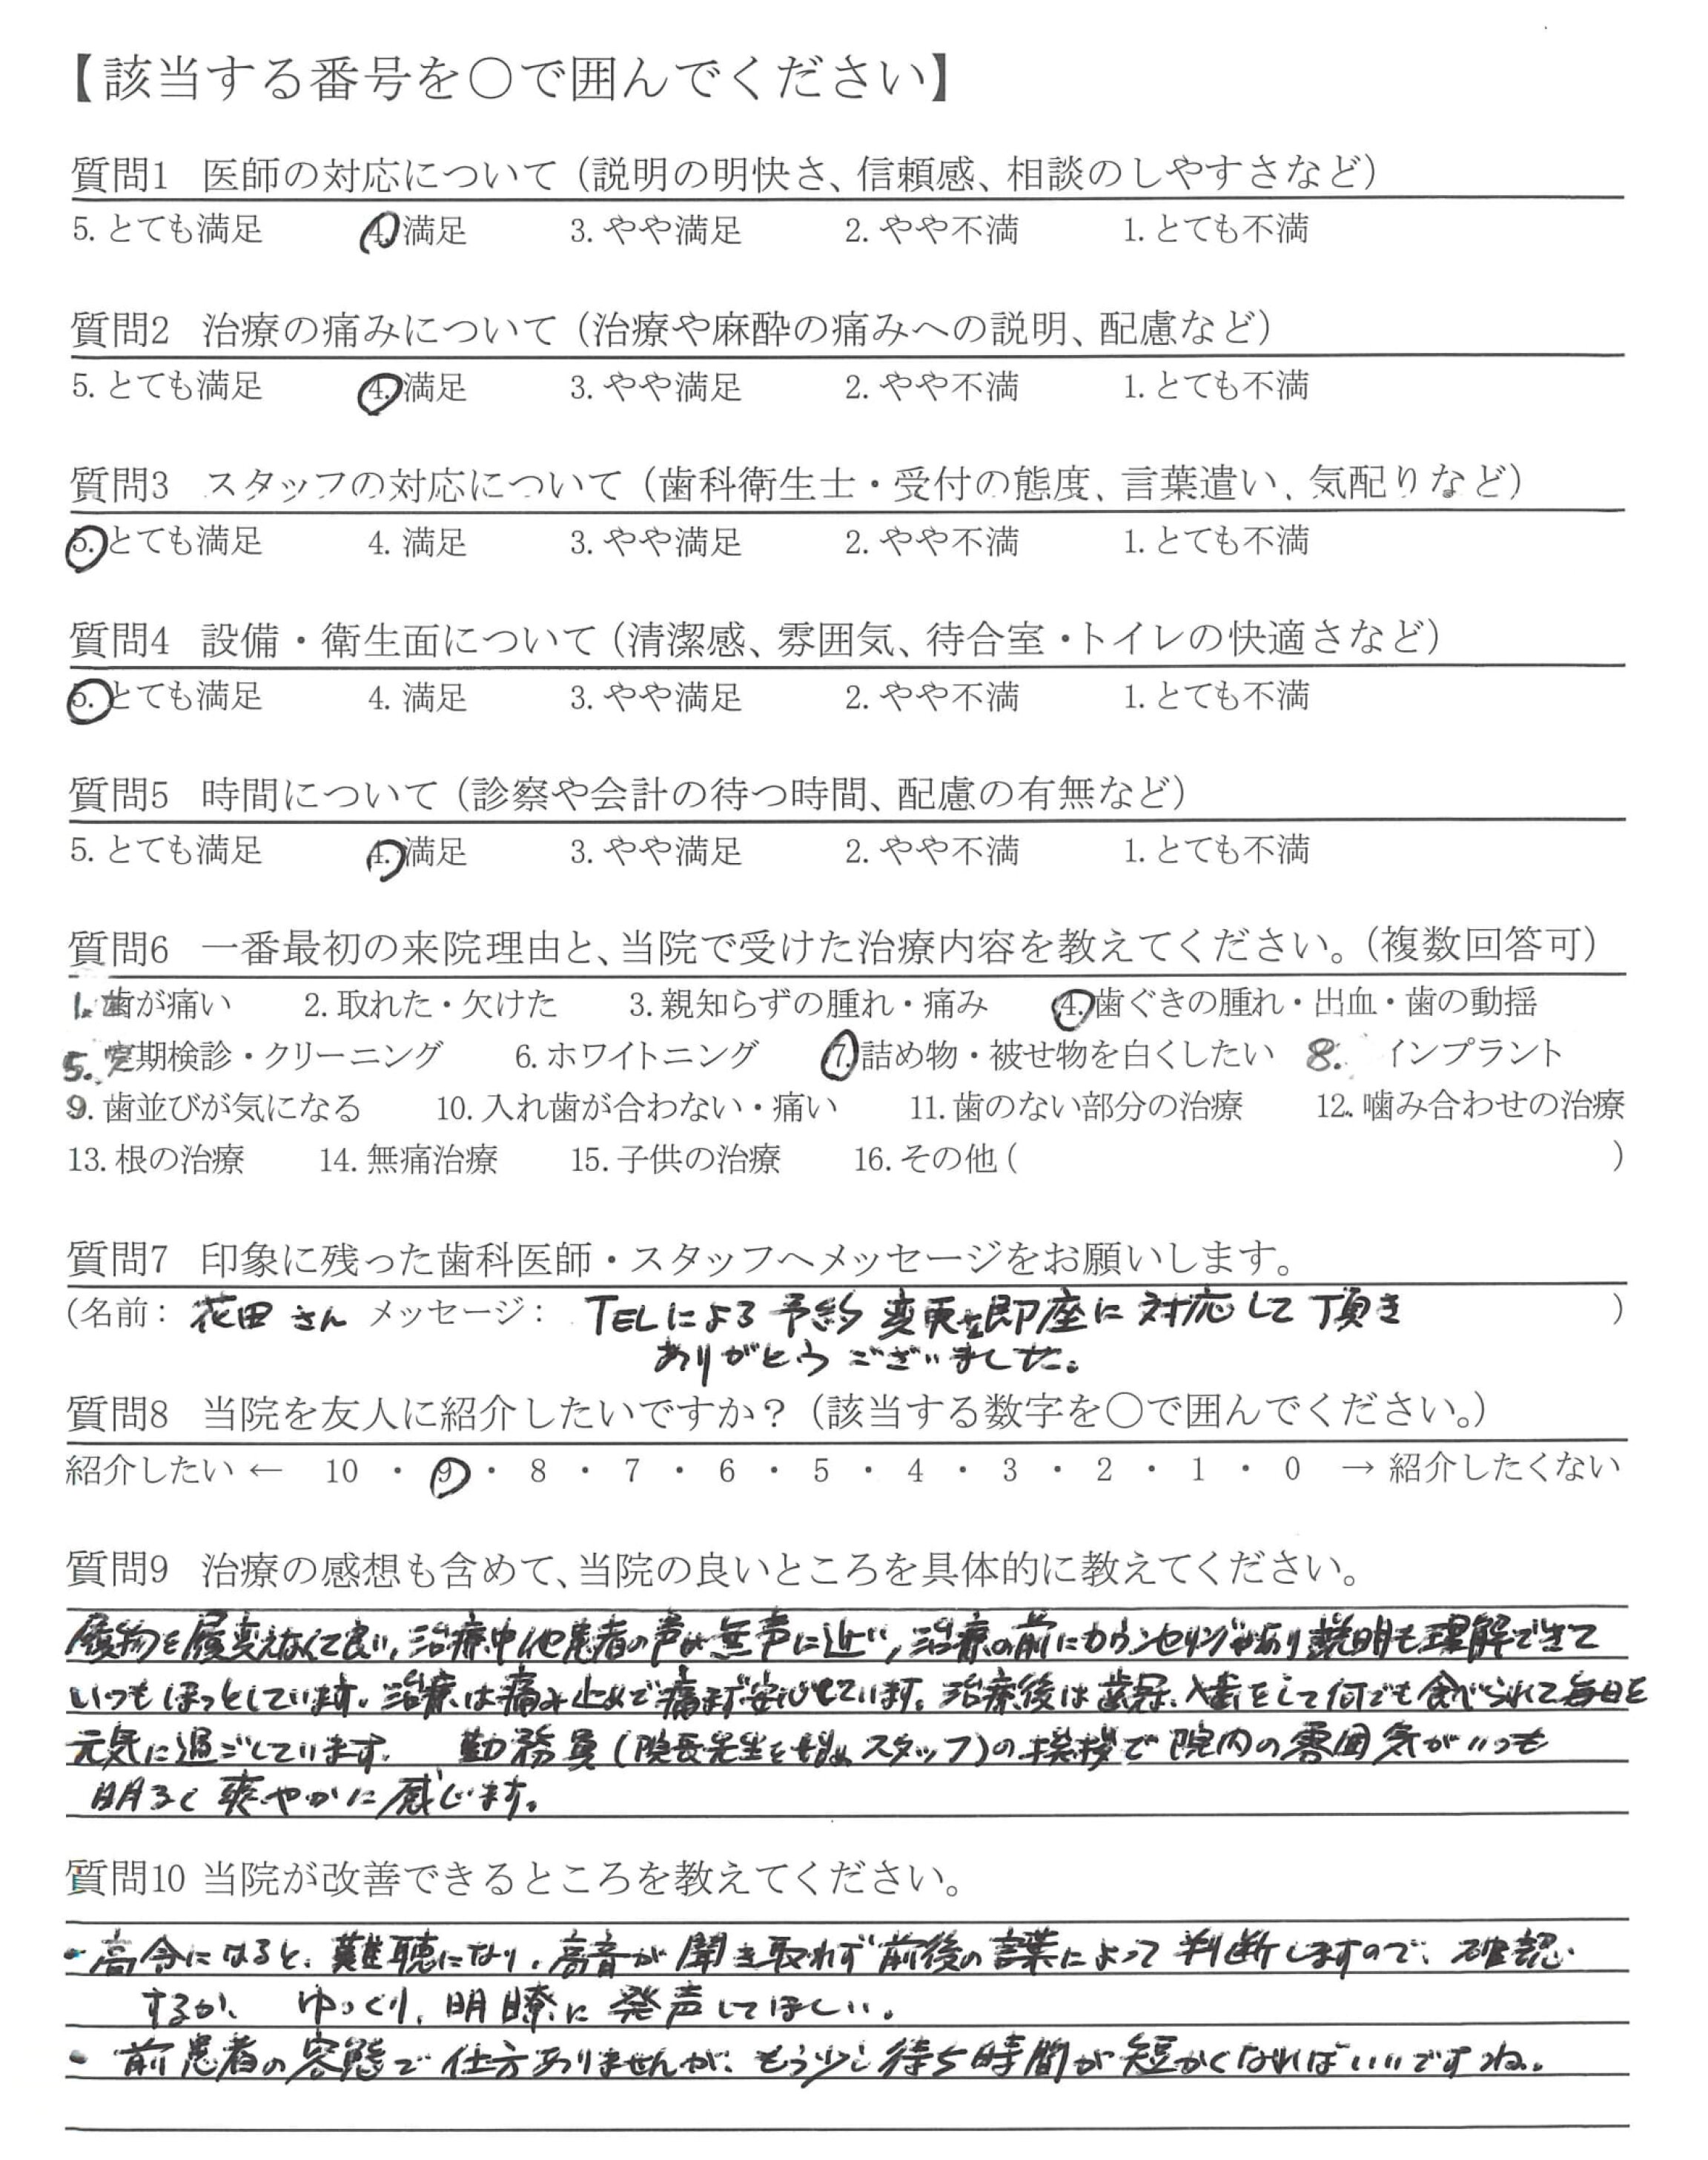 【該当する番号を○で囲んでください】
質問1 医師の対応について（説明の明快さ、信頼感、相談のしやすさなど）
5. とても満足 4. 満足 3. やや満足 2. やや不満 1. とても不満
質問2 治療の痛みについて（治療や麻酔の痛みへの説明、配慮など）
5. とても満足 4. 満足 3. やや満足 2. やや不満 1. とても不満
質問3 スタッフの対応について（歯科衛生士・受付の態度、言葉遣い、気配りなど）
5. とても満足 4. 満足 3. やや満足 2. やや不満 1. とても不満
質問4 設備・衛生面について（清潔感、雰囲気、待合室・トイレの快適さなど）
5. とても満足 4. 満足 3. やや満足 2. やや不満 1. とても不満
質問5 時間について（診察や会計の待つ時間、配慮の有無など）
5. とても満足 4. 満足 3. やや満足 2. やや不満 1. とても不満
質問6 一番最初の来院理由と、当院で受けた治療内容を教えてください。（複数回答可）
1. 歯が痛い 2. 取れた・欠けた 3. 親知らずの腫れ・痛み 4. 歯ぐきの腫れ・出血・歯の動揺
5. 定期検診・クリーニング 6. ホワイトニング 7. 詰め物・被せ物を白くしたい 8. インプラント
9. 歯並びが気になる 10. 入れ歯が合わない・痛い 11. 歯のない部分の治療 12. 噛み合わせの治療
13. 根の治療 14. 無痛治療 15. 子供の治療 16. その他（ ）
質問7 印象に残った歯科医師・スタッフへメッセージをお願いします。
（名前： 花田さん メッセージ： TELによる予約変更を即座に対応して頂き ）
ありがとうございました。
質問8 当院を友人に紹介したいですか？（該当する数字を○で囲んでください。）
紹介したい ← 10 ・ 9 ・ 8 ・ 7 ・ 6 ・ 5 ・ 4 ・ 3 ・ 2 ・ 1 ・ 0 → 紹介したくない
質問9 治療の感想も含めて、当院の良いところを具体的に教えてください。
履物を履変えなくて良い、治療中他患者の声が無声に近い、治療の前にカウンセリングがあり説明も理解できて
いつもほっとしています。治療は痛み止めで痛まず安心しています。治療後は歯冠、入歯をして何でも食べられて毎日を
元気に過ごしています。 勤務員（院長先生を スタッフ）の挨拶で院内の雰囲気がいつも
明るく爽やかに感じます。
質問10 当院が改善できるところを教えてください。
・高令になると、難聴になり、高音が聞き取れず前後の言葉によって判断しますので、確認
するか、 ゆっくり、明瞭に発声してほしい。
・前患者の容態で仕方ありませんが、もう少し待ち時間が短かくなればいいですね。